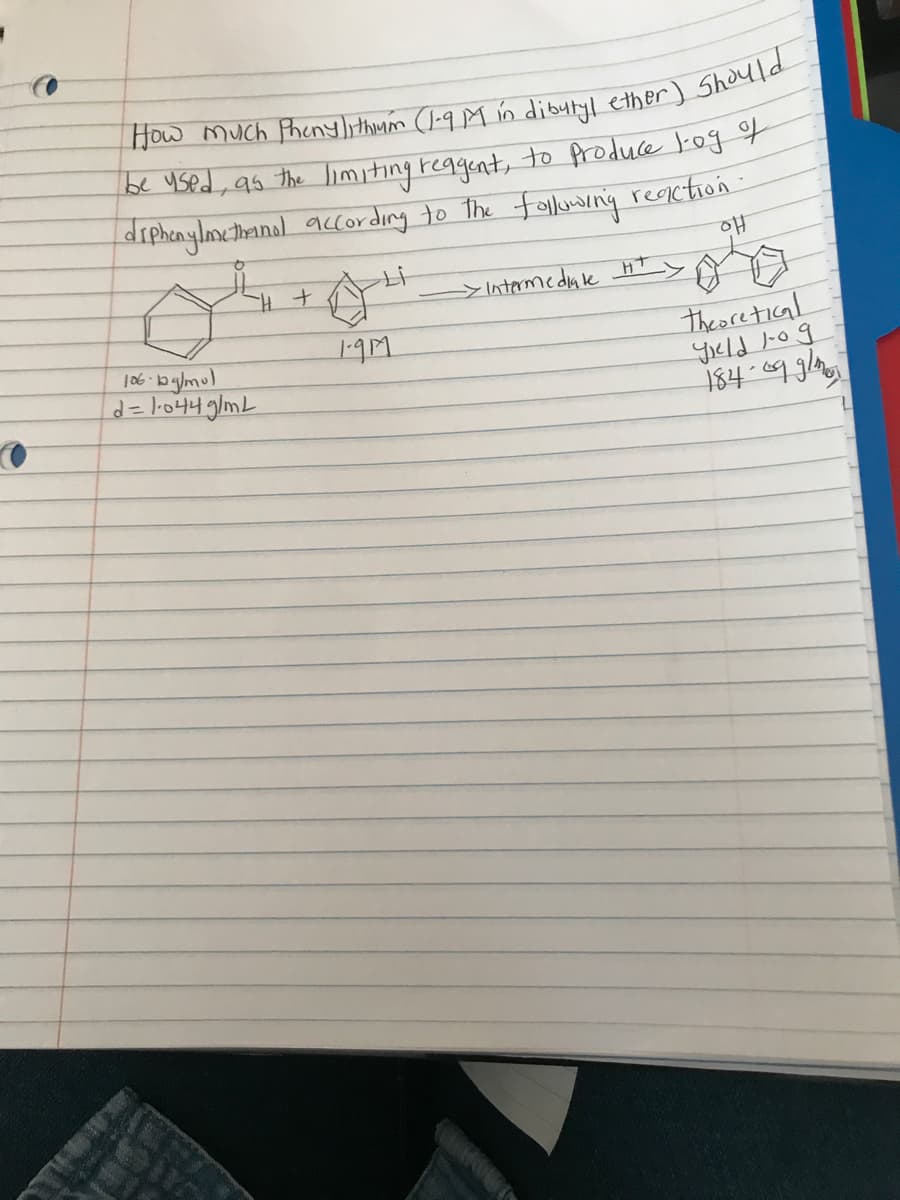 How much Phenylithium (1.9 M in dibutyl ether) should
be used, as the limiting reagent, to produce 1.0g of
diphenylmethanol according to the following reaction.
O
H + Li → Intermediate H+ → OH
1.9M
106.12g/mol
d = 1.044 g/mL
Theoretical
yield 1.0g
184.09 g/mol